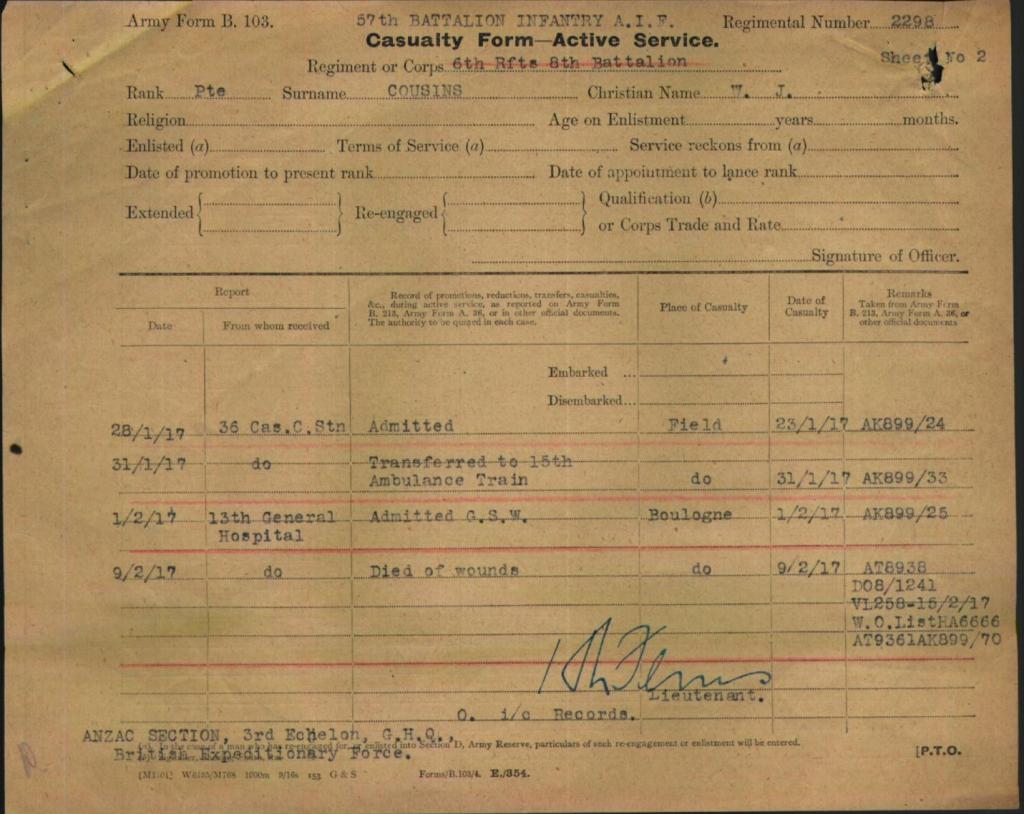 Army Form B. 103. 57th BATTALION INFANTRY A.I.F. Regimental Number 2298
Casualty Form—Active Service.
Sheet No 2
Regiment or Corps 6th Rfts 8th Battalion
Rank Pte Surname COUSINS Christian Name W. J.
Religion Age on Enlistment years months.
Enlisted (a) Terms of Service (a) Service reckons from (a)
Date of promotion to present rank Date of appointment to lance rank
Extended Re-engaged Qualification (b)
or Corps Trade and Rate
Signature of Officer.
Report
Date From whom received
Record of promotions, reductions, transfers, casualties,
&c., during active service, as reported on Army Form
B. 213, Army Form A. 36, or in other official documents.
The authority to be quoted in each case.
Place of Casualty
Date of
Casualty
Remarks
Taken from Army Form
B. 213, Army Form A. 36, or
other official documents
Embarked ...
Disembarked...
28/1/17 36 Cas.C.Stn Admitted Field 23/1/17 AK899/24
31/1/17 do Transferred to 15th
Ambulance Train do 31/1/17 AK899/33
1/2/17 13th General Admitted G.S.W. Boulogne 1/2/17 AK899/25
Hospital
9/2/17 do Died of wounds do 9/2/17 AT8938
D08/1241
VL258-15/2/17
W.O.ListHA6666
AT9361AK899/70
Lieutenant.
O. i/c Records.
ANZAC SECTION, 3rd Echelon, G.H.Q.,
(a) In the case of a man who has re-engaged for, or enlisted into Section D, Army Reserve, particulars of such re-engagement or enlistment will be entered.
British Expeditionary Force.
[P.T.O.
1000m 9/16s 153 G & S Forms/B.103/4. E./354.